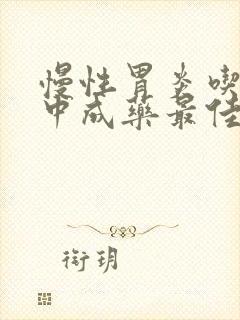 慢性胃炎喫
中成藥最佳
衔玥